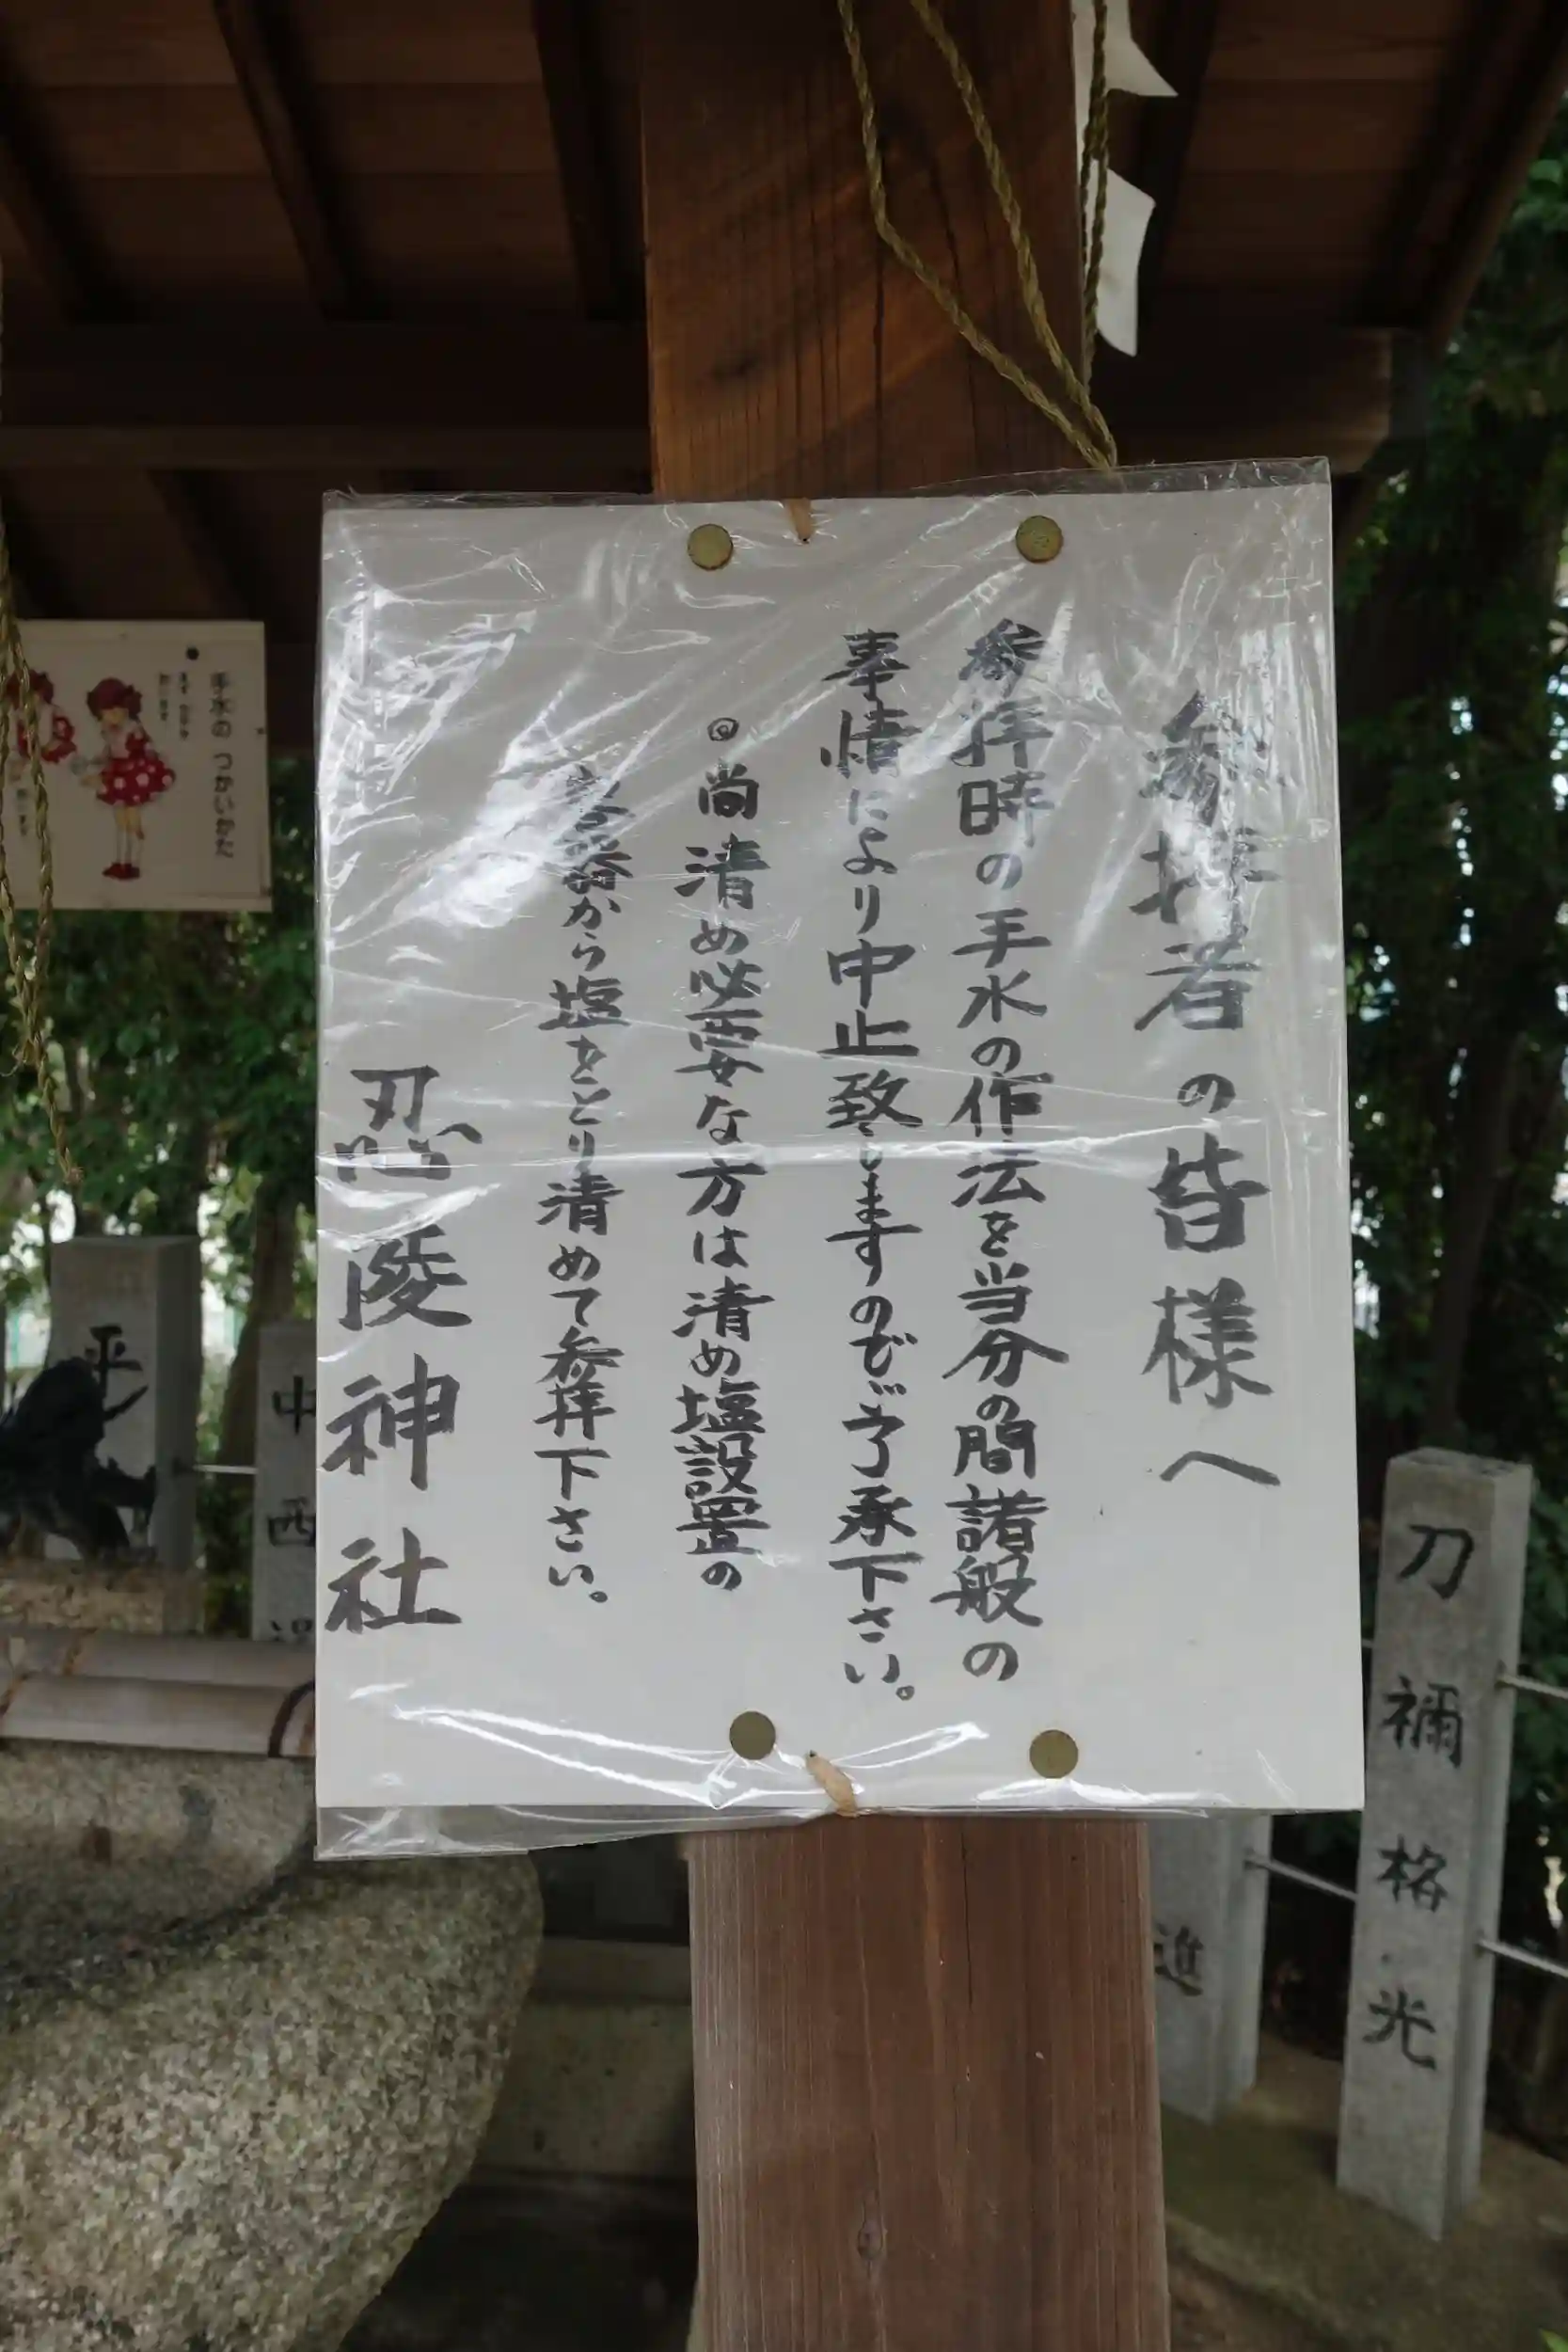 参拝者の皆様へ
参拝時の手水の作法を当分の間諸般の
事情により中止致しますのでご了承下さい。
◎尚清め必要な方は清め塩設置の
容器から塩をとり清めて参拝下さい。
忍陵神社
手水の つかいかた
平
中西
刀禰格光
進